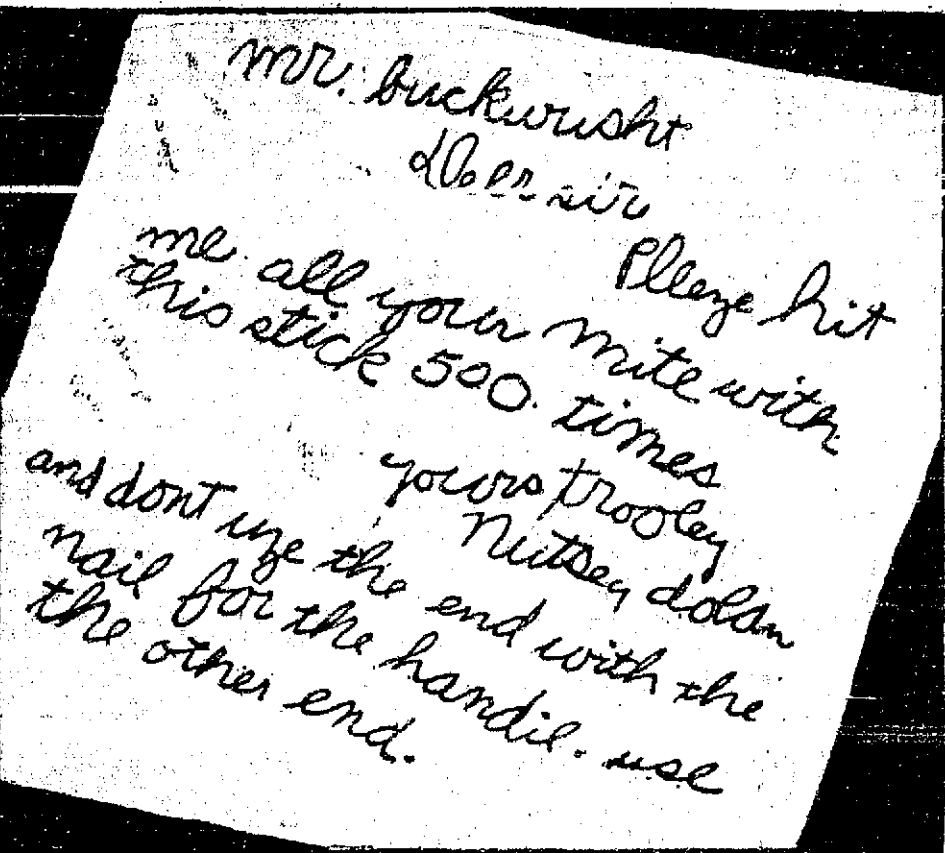 mr. buckwusht
deer sir
Pleeze hit
me. all your mite with
this stick 500. times
yours trooley
Nutsey dolan
and dont uze the end with the
nail for the handil. use
the other end.